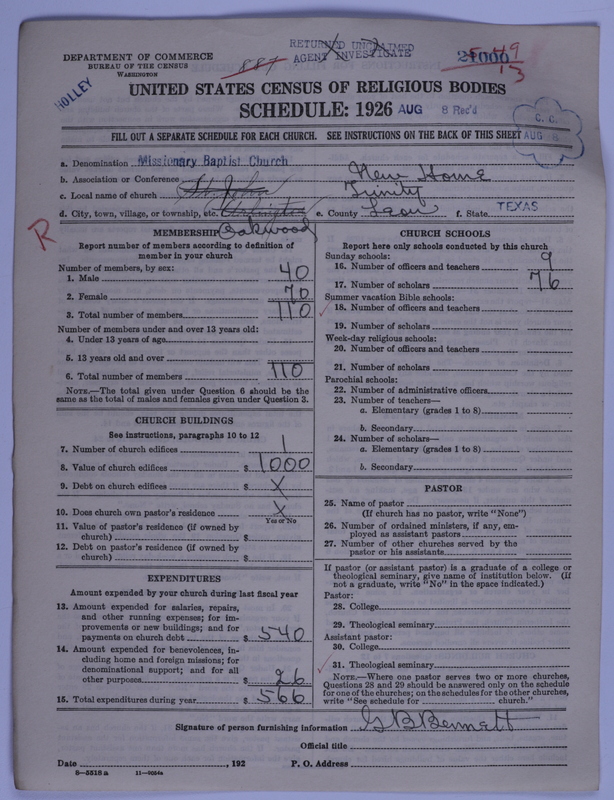 RETURNED UNCLAIMED
AGENT INVESTIGATE
DEPARTMENT OF COMMERCE
BUREAU OF THE CENSUS
WASHINGTON
887
HOLLEY
UNITED STATES CENSUS OF RELIGIOUS BODIES
SCHEDULE: 1926 AUG 8 Rec'd
C. C.
AUG
FILL OUT A SEPARATE SCHEDULE FOR EACH CHURCH. SEE INSTRUCTIONS ON THE BACK OF THIS SHEET
a. Denomination Missionary Baptist Church
b. Association or Conference New Home
c. Local name of church Trinity
d. City, town, village, or township, etc. Arlington Oakwood e. County Leon f. State TEXAS
R
MEMBERSHIP
Report number of members according to definition of
member in your church
Number of members, by sex:
1. Male 40
2. Female 70
3. Total number of members 110
Number of members under and over 13 years old:
4. Under 13 years of age
5. 13 years old and over
6. Total number of members 110
NOTE.—The total given under Question 6 should be the
same as the total of males and females given under Question 3.
CHURCH BUILDINGS
See instructions, paragraphs 10 to 12
7. Number of church edifices 1
8. Value of church edifices $ 1000
9. Debt on church edifices $ X
10. Does church own pastor's residence X
Yes or No
11. Value of pastor's residence (if owned by
church) $
12. Debt on pastor's residence (if owned by
church) $
EXPENDITURES
Amount expended by your church during last fiscal year
13. Amount expended for salaries, repairs,
and other running expenses; for im-
provements or new buildings; and for
payments on church debt $ 540
14. Amount expended for benevolences, in-
cluding home and foreign missions; for
denominational support; and for all
other purposes $ 26
15. Total expenditures during year $ 566
CHURCH SCHOOLS
Report here only schools conducted by this church
Sunday schools:
16. Number of officers and teachers 9
17. Number of scholars 76
Summer vacation Bible schools:
18. Number of officers and teachers
19. Number of scholars
Week-day religious schools:
20. Number of officers and teachers
21. Number of scholars
Parochial schools:
22. Number of administrative officers
23. Number of teachers—
a. Elementary (grades 1 to 8)
b. Secondary
24. Number of scholars—
a. Elementary (grades 1 to 8)
b. Secondary
PASTOR
25. Name of pastor
(If church has no pastor, write "None")
26. Number of ordained ministers, if any, em-
ployed as assistant pastors
27. Number of other churches served by the
pastor or his assistants
If pastor (or assistant pastor) is a graduate of a college or
theological seminary, give name of institution below. (If
not a graduate, write "No" in the space indicated.)
Pastor:
28. College
29. Theological seminary
Assistant pastor:
30. College
31. Theological seminary
NOTE.—Where one pastor serves two or more churches,
Questions 28 and 29 should be answered only on the schedule
for one of the churches; on the schedules for the other churches,
write "See schedule for church."
Signature of person furnishing information G B Bennett
Official title
Date , 192 P. O. Address
8—5518 a 11—9054a